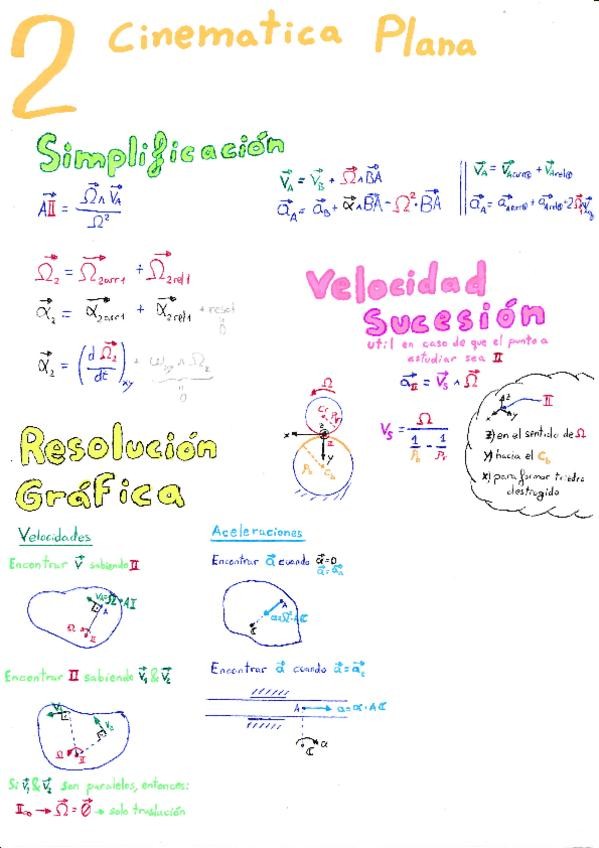 2 Cinematica Plana
Simplificación
AII⃗ = Ω⃗ ∧ V⃗_A / Ω²
V⃗_A = V⃗_B + Ω⃗ ∧ BA⃗
a⃗_A = a⃗_B + α⃗ ∧ BA⃗ - Ω² · BA⃗
V⃗_A =
a⃗_A =
Ω⃗₂ = Ω⃗₂arr1 + Ω⃗₂rel1
α⃗₂ = α⃗₂arr1 + α⃗₂rel1 +
0
α⃗₂ = (d Ω⃗₂ / dt)xy + ∧ Ω₂
0
Velocidad
Sucesión
util en caso de que el punto a
estudiar sea II
a⃗_II = V⃗_S ∧ Ω⃗
V_S = Ω / (1/ρ_b - 1/ρ_r)
Ω
Cr
ρr
x
II
y
ρb
Cb
z
x
y
II
z) en el sentido de Ω
y) hacia el Cb
x) para formar triedro
Resolución
Gráfica
Velocidades
Encontrar V⃗ sabiendo II
A
Ω
II
Encontrar II sabiendo V⃗₁ & V⃗₂
V₁
V₂
Ω
II
Si V⃗₁ & V⃗₂ son paralelos, entonces:
II∞ → Ω⃗ = 0⃗ → solo traslución
Aceleraciones
Encontrar a⃗ cuando α⃗=0
A
C
Encontrar a⃗ cuando
A
a=α·AC
α
C